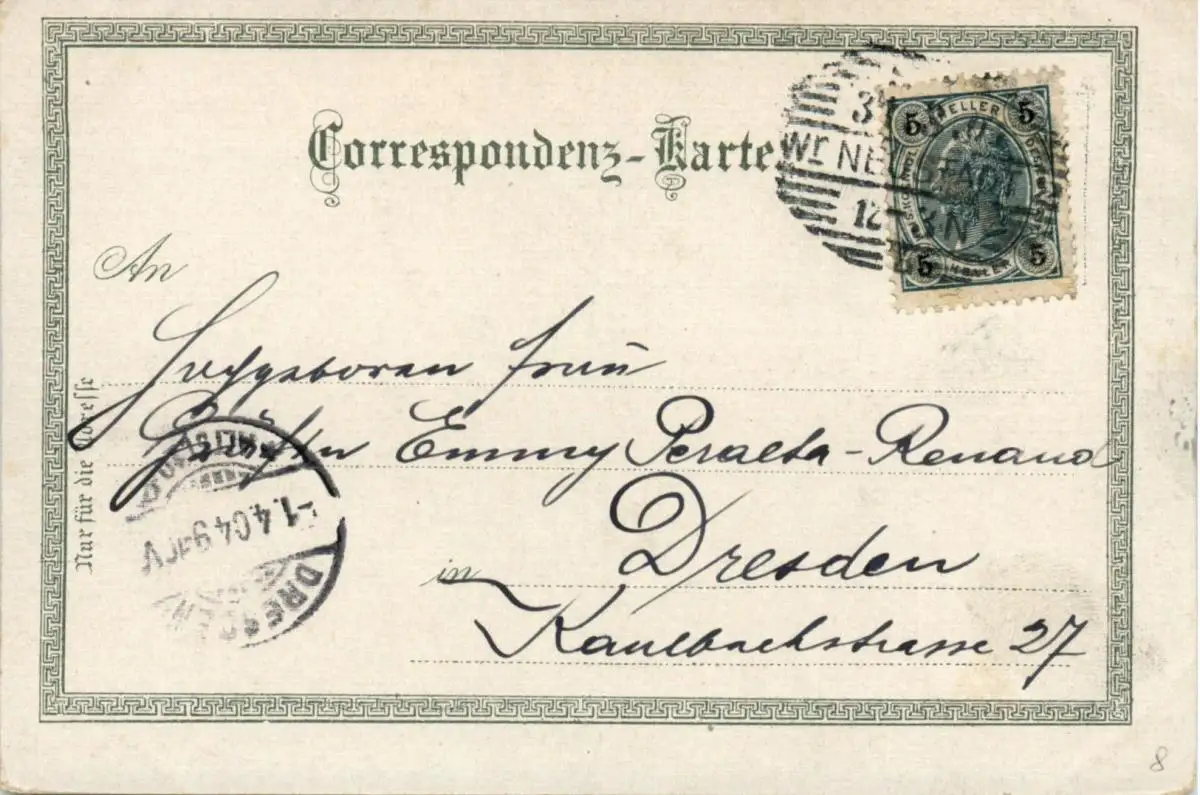 Correspondenz-Karte
5 HELLER 5
5 HELLER 5
3
Wr. NEUSTADT
12 3N
An
Hochgeboren Frau
Gräfin Emmy Peralta-Renaud
in Dresden
Kaulbachstrasse 27
Nur für die Adresse
-1.4.04 9-10V
DRESDEN
8